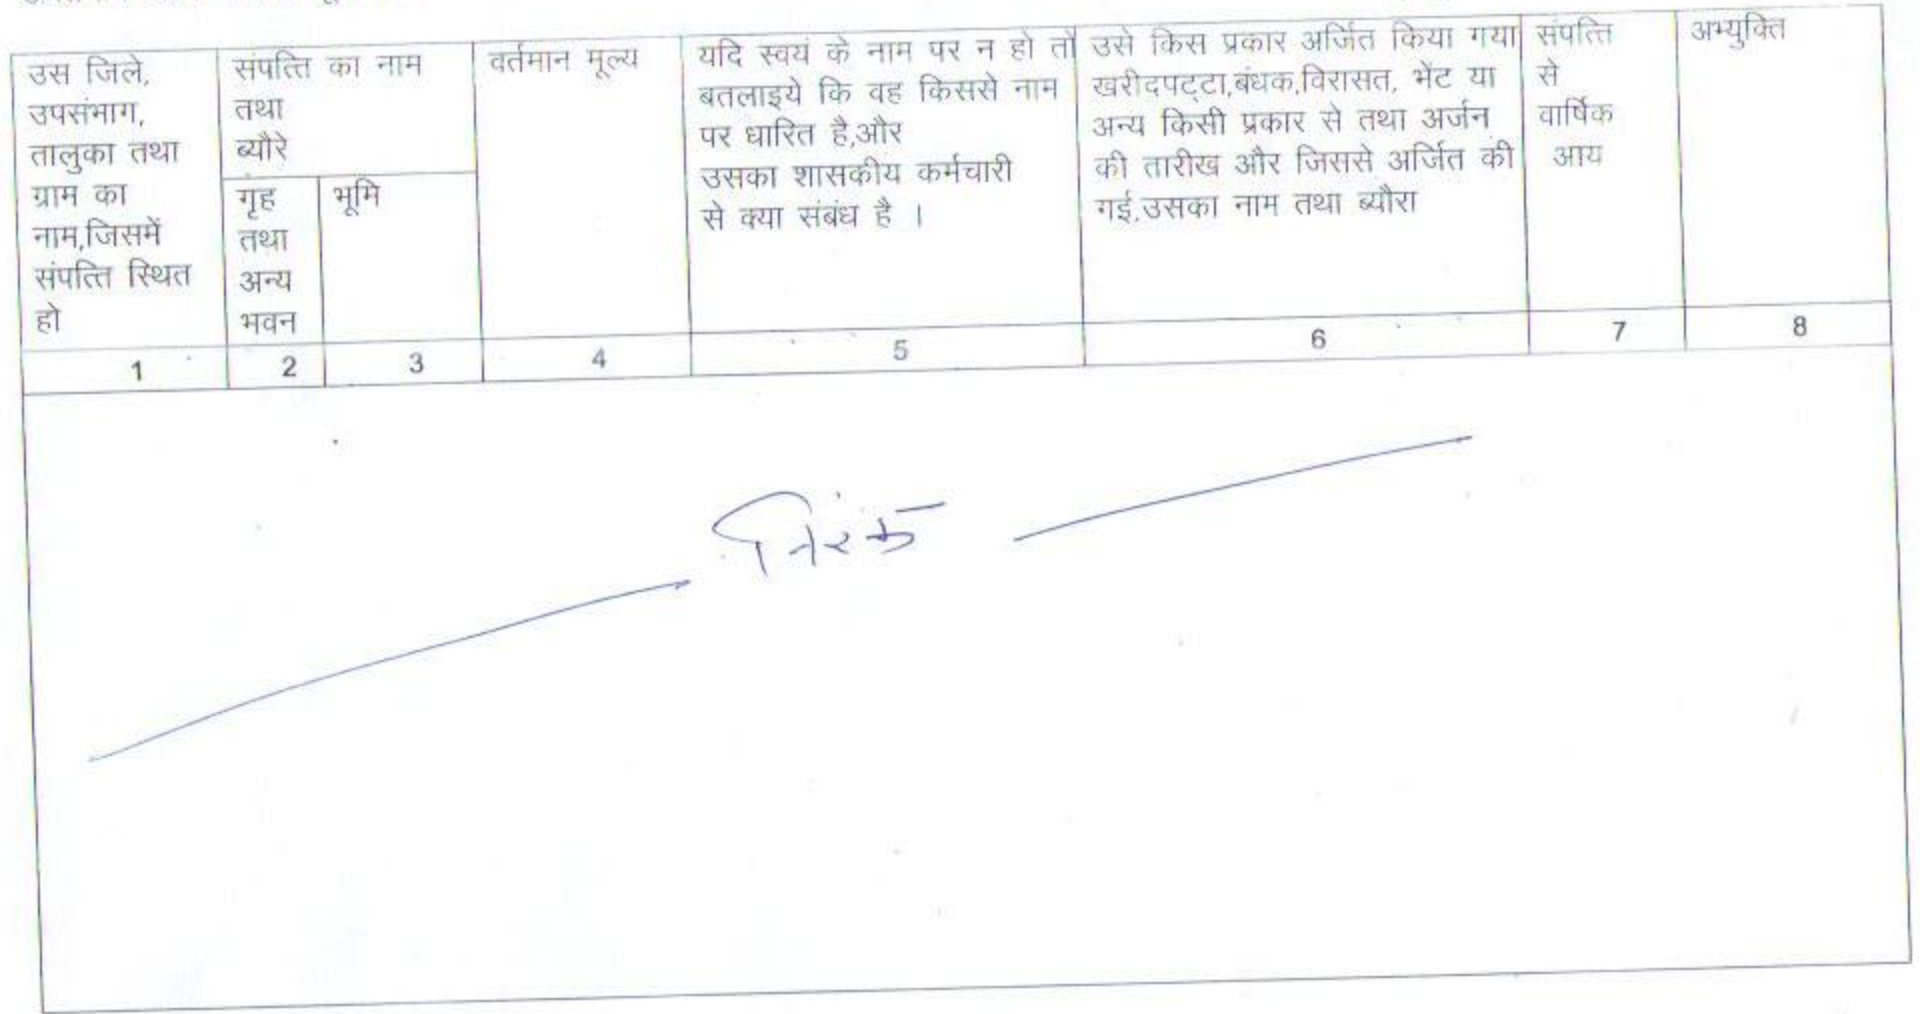 उस जिले,
उपसंभाग,
तालुका तथा
ग्राम का
नाम,जिसमें
संपत्ति स्थित
हो
संपत्ति का नाम
तथा
ब्यौरे
गृह
तथा
अन्य
भवन
भूमि
वर्तमान मूल्य
यदि स्वयं के नाम पर न हो तो
बतलाइये कि वह किससे नाम
पर धारित है,और
उसका शासकीय कर्मचारी
से क्या संबंध है ।
उसे किस प्रकार अर्जित किया गया
खरीदपट्टा,बंधक,विरासत, भेंट या
अन्य किसी प्रकार से तथा अर्जन
की तारीख और जिससे अर्जित की
गई,उसका नाम तथा ब्यौरा
संपत्ति
से
वार्षिक
आय
अभ्युक्ति
1 2 3 4 5 6 7 8
निरंक